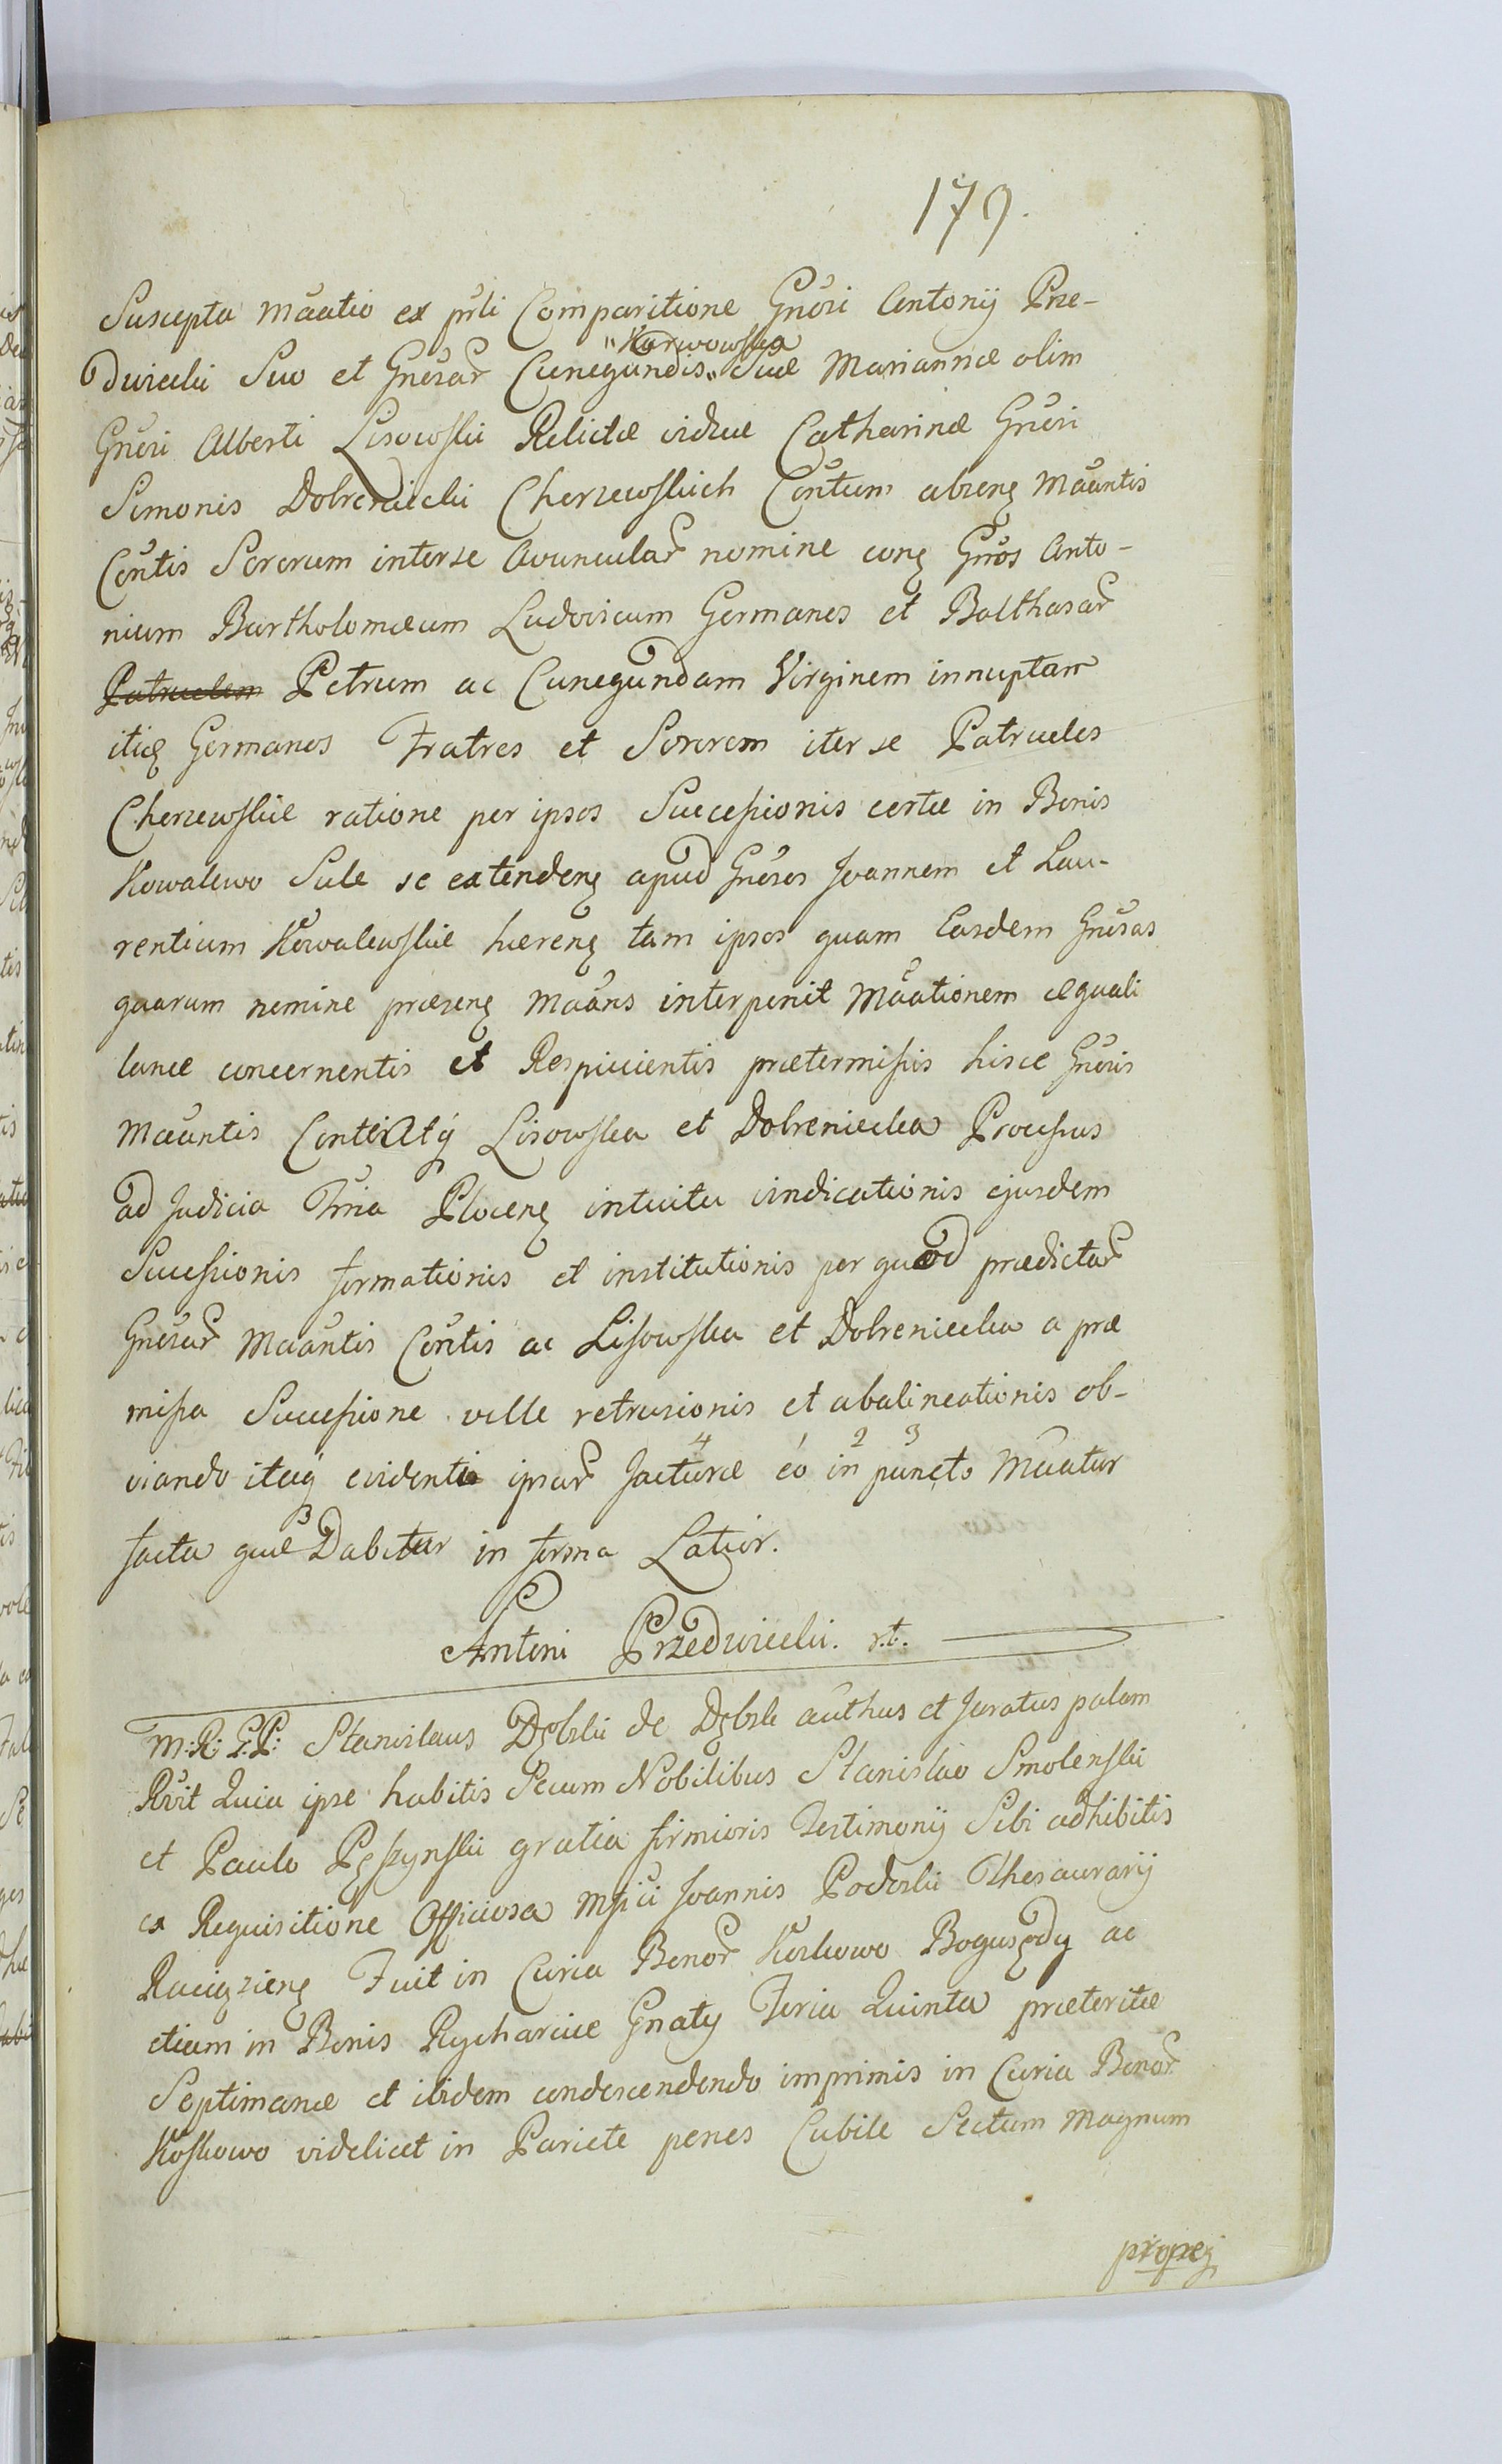 179.
Suscepta Mãatio ex prli Comparitione Gnõri Antonij Prze-
"Karwowska
dwiecki Suo et Gnõrar Cunegundis" Suæ Mariannæ olim
Gnõri Alberti Lisowski Relictæ viduæ Catharinæ Gnõri
Simonis Dobreniecki Cherzewskich Contum abseng Mãantis
Contis Sororum interse Avuncular nomine cong Gnõs Anto-
nium Bartholomæum Ludovicum Germanos et Balthasar
Patruelem Petrum ac Cunegundam Virginem innuptam
itiq Germanos Fratres et Sororem iter se Patrueles
Cherzewskie ratione per ipsos Successionis certæ in Bonis
Kowalewo Sule se extendeng apud Gnõros Joannem et Lau-
rentium Kowalewskie hæreng tam ipsos quam Easdem Gnõras
quarum nomine præseng Mãans interponit Mãationem æquali
lance concernentis et Respicientis prætermissis hisce Gnõris
Mãantis Conti Atq Lisowska et Dobreniecka Processus
ad Judicia Tria Ploceng intuitu vindicationis ejusdem
Successionis formationis et institutionis per quod prædictar
Gnõrar Mãantis Contis ac Lisowska et Dobreniecka a præ
missa Successione velle retrusionis et abalineationis ob-
viando itaq evidenti ipsar Jacturæ eo in puncto Mãatur
4 1 2 3
facta quæ Dabitur in forma Latior.
Antoni Przedwiecki. r.t.
M: R: G: P: Stanislaus Dębski de Dębsk authus et Juratus palam
Rvit Quia ipse habitis Secum Nobilibus Stanislao Smolenski
et Paulo Pęszynski gratia firmioris Testimonij Sibi adhibitis
ex Requisitione Officiosa Mfici Joannis Podoski Thesaurarij
Raciązieng Fuit in Curia Bonor Koskowo Boguszędy ac
etiam in Bonis Rycharcice Gnaty Feria Quinta præteritæ
Septimanæ et ibidem condescendendo imprimis in Curia Bonor
Koskowo videlicet in Pariete penes Cubile Sectum Magnum